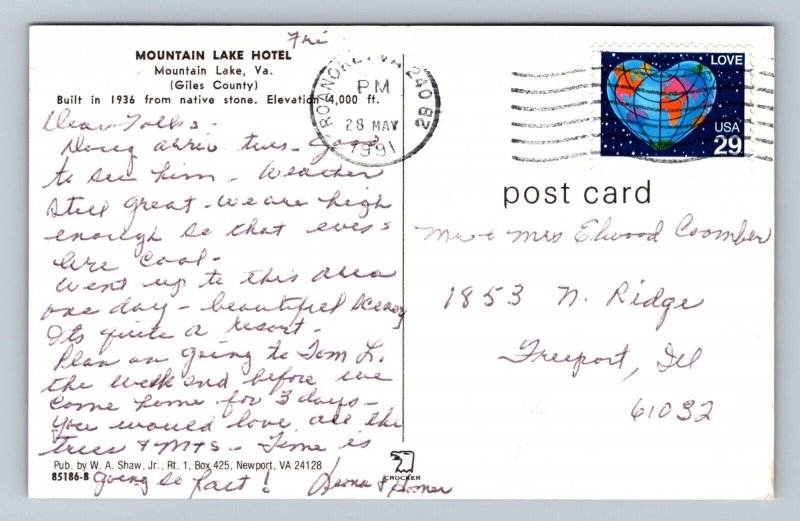 Fri
MOUNTAIN LAKE HOTEL
Mountain Lake, Va.
(Giles County)
Built in 1936 from native stone. Elevation 4,000 ft.
Dear Folks -
Doug arriv tues - Good
to see him - Weather
still great - we are high
enough so that eves -
are cool -
Went up to this area
one day - beautiful scenery
Its quite a resort -
Plan on going to Tom L.
the week end before we
come home for 3 days -
You would love all the
trees & Mts - Time is
going so fast!
Pub. by W. A. Shaw, Jr., Rt. 1, Box 425, Newport, VA 24128
85186-B
CROCKER
ROANOKE, VA 24082
PM
28 MAY
1991
LOVE
USA
29
post card
Mr & Mrs Elwood Coomber
1853 N. Ridge
Freeport, Ill
61032